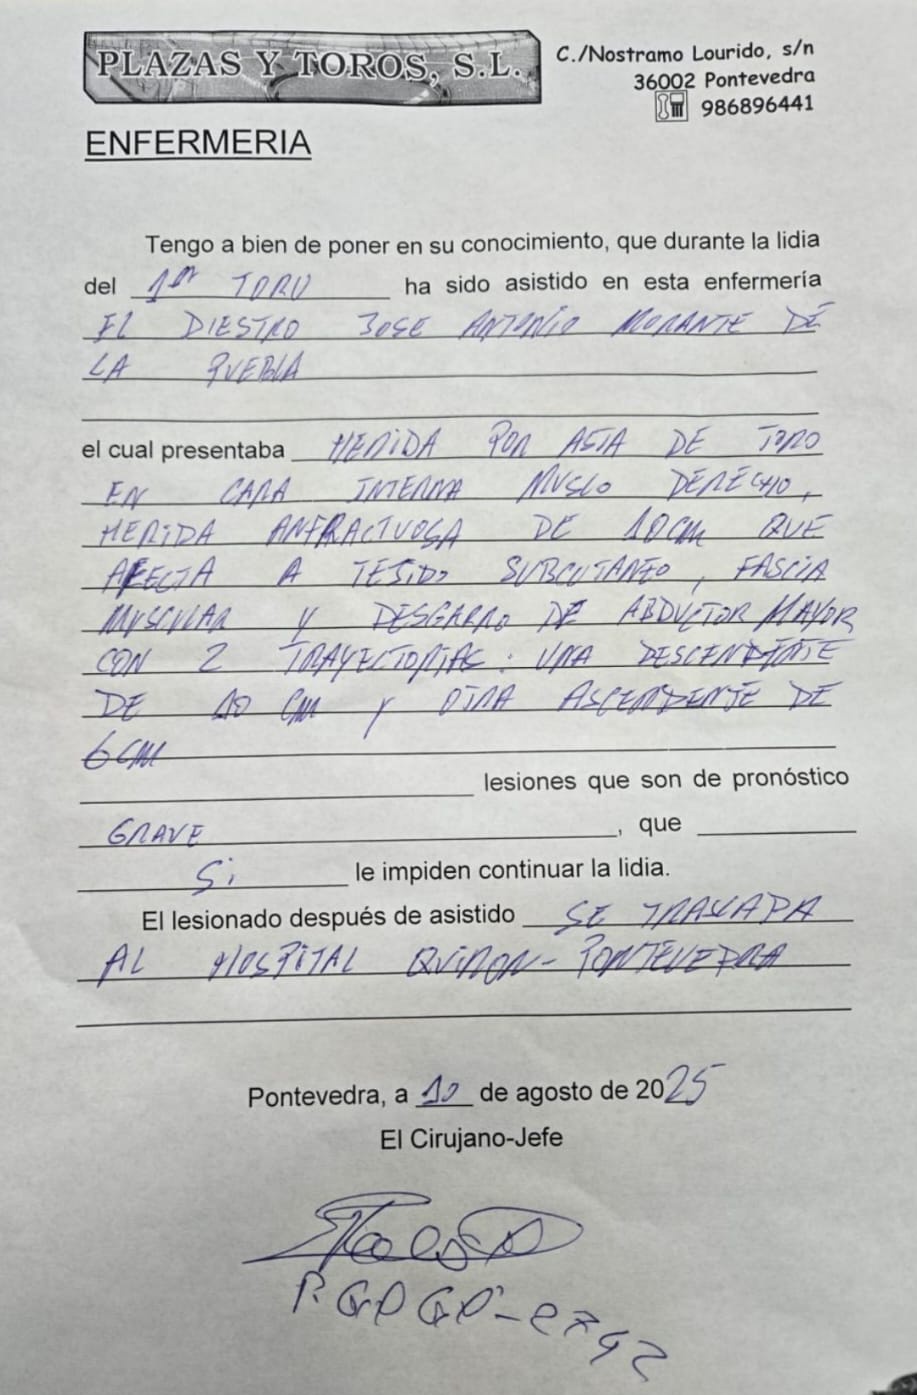 PLAZAS Y TOROS, S.L.
C./Nostramo Lourido, s/n
36002 Pontevedra
986896441
ENFERMERIA
Tengo a bien de poner en su conocimiento, que durante la lidia
del 1er TORO ha sido asistido en esta enfermería
EL DIESTRO JOSE ANTONIO MORANTE DE
LA PUEBLA
el cual presentaba HERIDA POR ASTA DE TORO
EN CARA INTERNA MUSLO DERECHO,
HERIDA ANFRACTUOSA DE 10 CM QUE
AFECTA A TEJIDO SUBCUTANEO, FASCIA
MUSCULAR Y DESGARRO DE ABDUCTOR MAYOR
CON 2 TRAYECTORIAS: UNA DESCENDENTE
DE 10 CM Y OTRA ASCENDENTE DE
6 CM
lesiones que son de pronóstico
GRAVE, que
Si le impiden continuar la lidia.
El lesionado después de asistido SE TRASLADA
AL HOSPITAL QUIRON-PONTEVEDRA
Pontevedra, a 10 de agosto de 2025
El Cirujano-Jefe